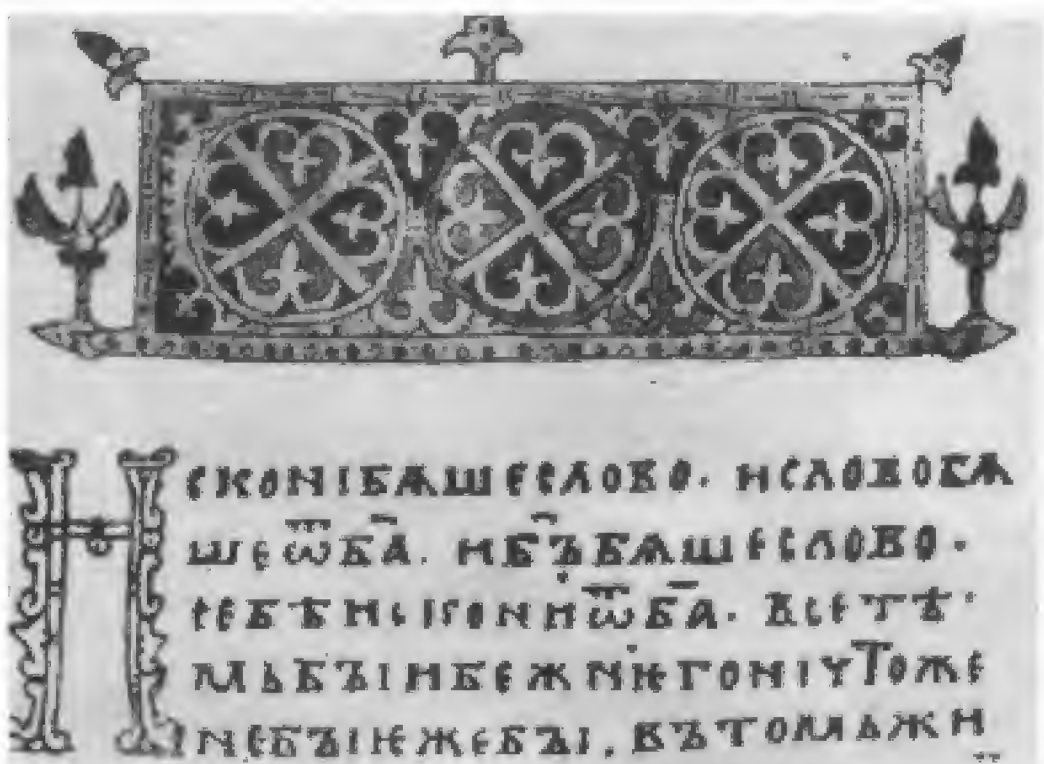 Исконибѧшесловo. исловобѧ
шеѿб҃а. иб҃ъбѧшеслово.
себѣисконїѿб҃а. всетѣ
мьбꙑ инбежнѥгонїѵтоже
небꙑ нежебꙑ. вътомьжи